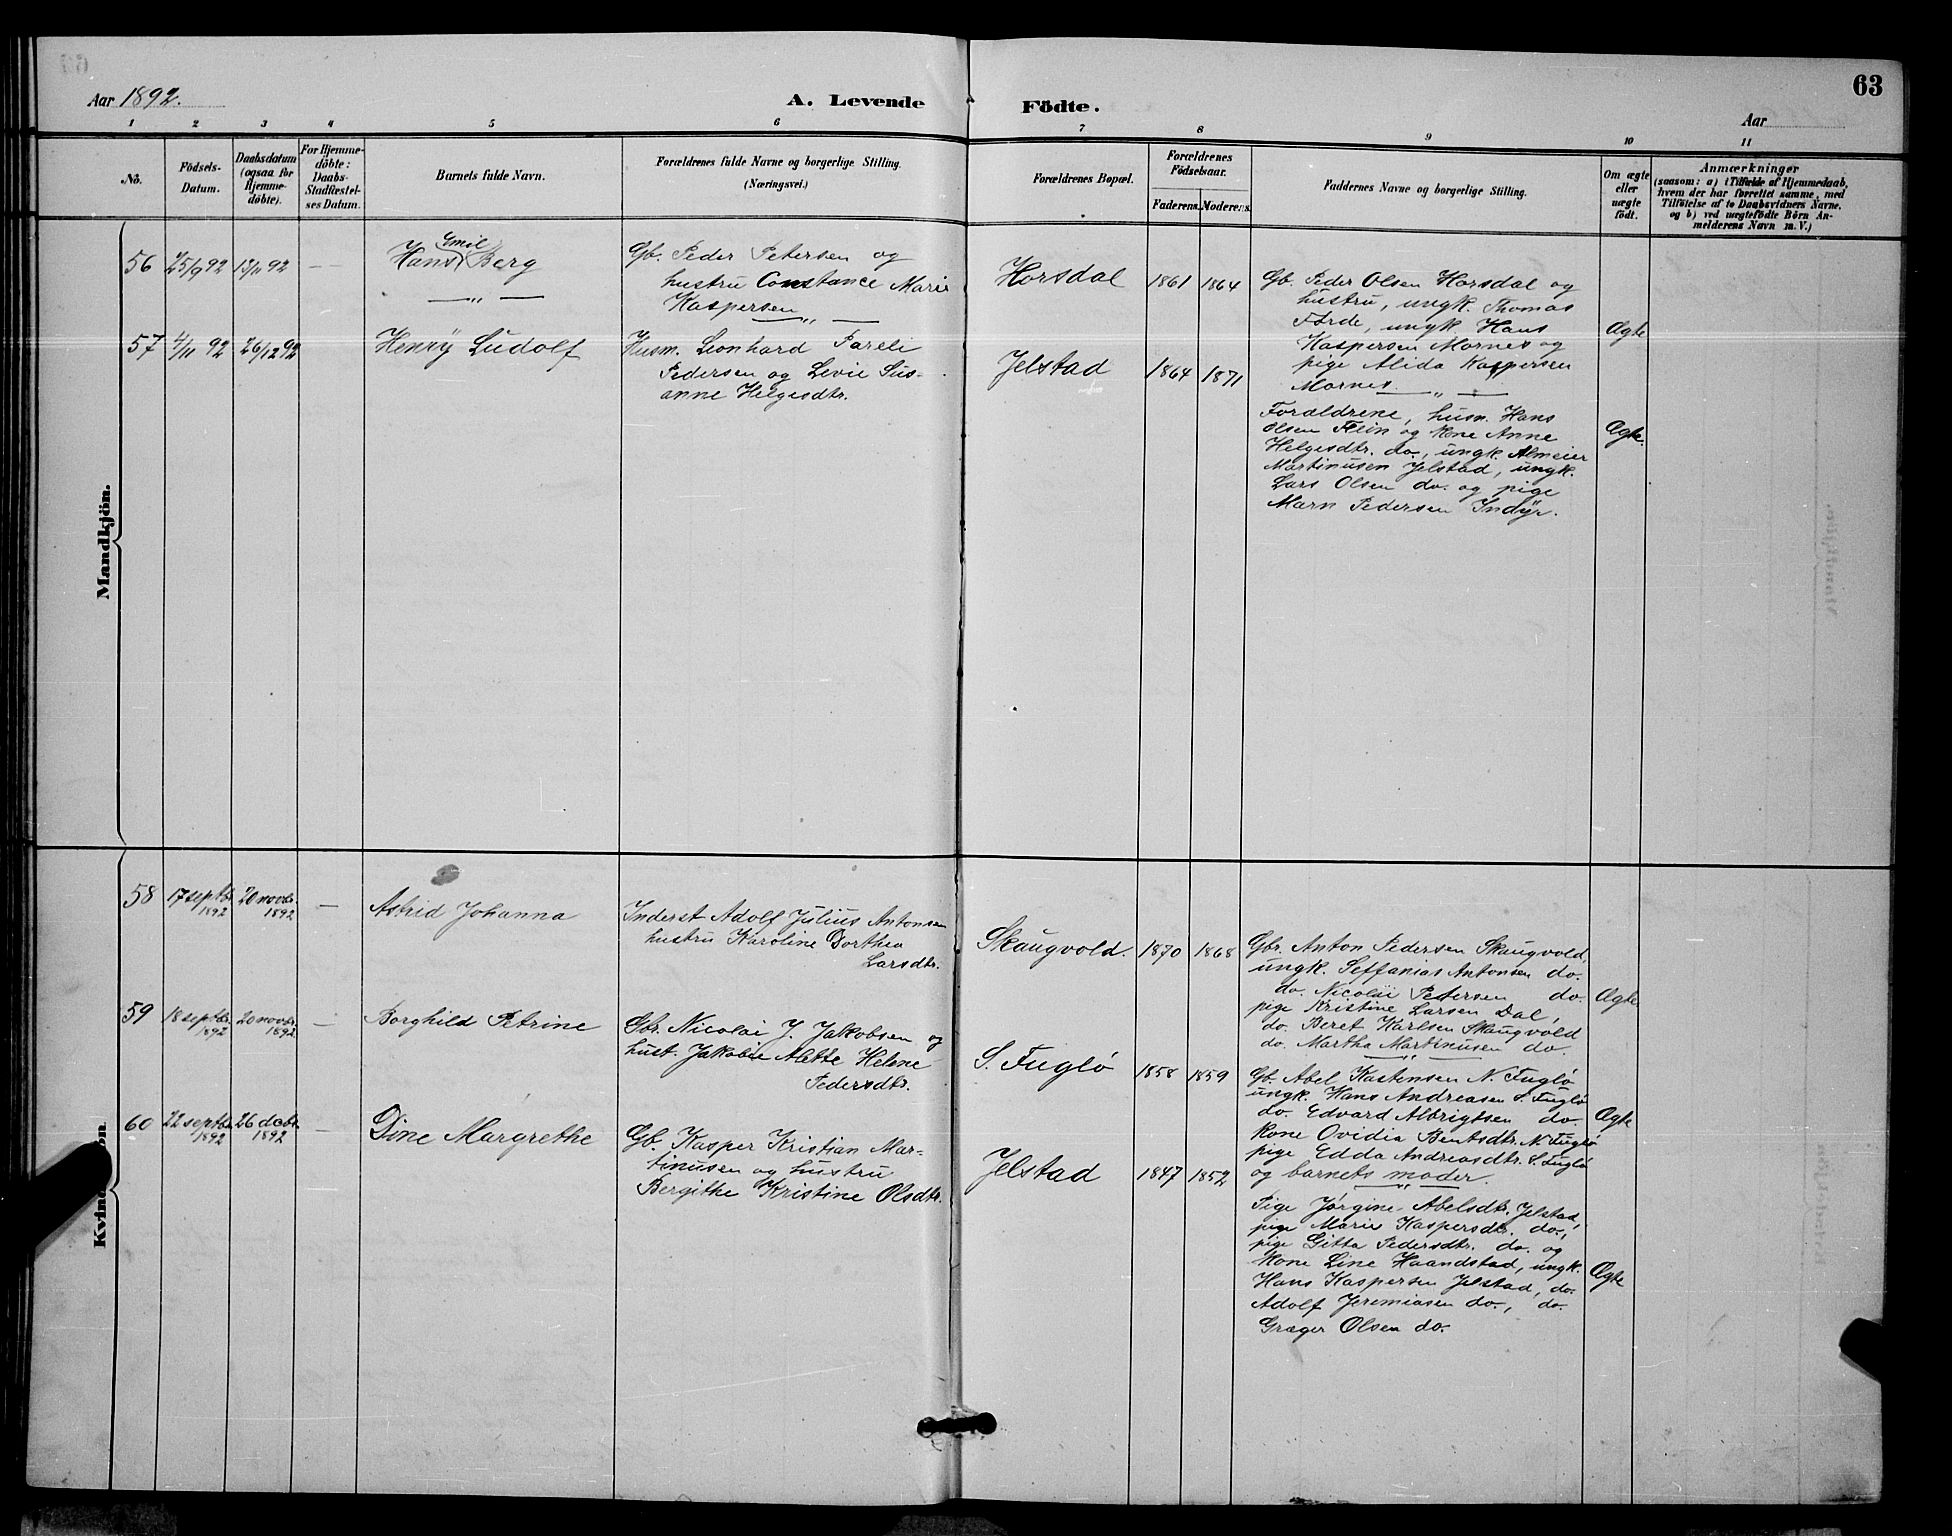 Aar 1892.
A. Levende Födte.
63
Aar
1 2 3 4 5 6 7 8 9 10 11
No.
Födsels-
Datum.
Daabsdatum
(ogsaa for
Hjemme-
döbte).
For Hjemme-
döbte:
Daabs-
Stadfæstel-
ses Datum.
Barnets fulde Navn.
Forældrenes fulde Navne og borgerlige Stilling.
(Næringsvei.)
Forældrenes Bopæl.
Forældrenes
Födselsaar.
Faderens. Moderens.
Faddernes Navne og borgerlige Stilling.
Om ægte
eller
uægte
födt.
Anmærkninger
(saasom: a) i Tilfælde af Hjemmedaab,
hvem der har forrettet samme, med
Tilföielse af to Daabsvidners Navne,
og b) ved uægtefödte Börn An-
melderens Navn m. V.)
Mandkjön.
56 25/9 92 13/11 92 — —
Emil
Hans Berg
— „ —
Gb. Peder Petersen og
hustru Constance Marie
Kaspersen
— „ —
Horsdal 1861 1864
Gb. Peder Olsen Horsdal og
hustru, ungk. Thomas
Førde, ungk. Hans
Kaspersen Mornes og
pige Alida Kaspersen
Mornes. — „ —
Ægte
57 4/11 92 26/12 92
Henrÿ Ludolf
Husm. Leonhard Pareli
Pedersen og Levie Sus-
anne Helgesdtr.
Jelstad 1864 1871
Forældrene, husm. Hans
Olsen Flein og kone Anne
Helgesdtr. do., ungk. Almeier
Martinusen Jelstad, ungk.
Lars Olsen do. og pige
Marn Pedersen Indÿr.
Ægte.
Kvindekjön
58 17 septbr. 1892 20 novbr. 1892 —
Astrid Johanna
Inderst Adolf Julius Antonsen
hustru Karoline Dorthea
Larsdtr.
Skaugvold. 1870 1868
Gbr. Anton Pedersen Skaugvold,
ungk. Seffanias Antonsen do.
do. Nicolai Petersen do.
pige Kristine Larsen Dal,
do. Beret Karlsen Skaugvold
do. Martha Martinusen do.
— „ —
Ægte
59 18 septbr. 1892 20 novbr. 1892 —
Borghild Petrine
Gbr. Nicolai J. Jakobsen og
hust. Jakobie Alette Helene
Pedersdtr.
S. Fuglø 1858 1859
Gb. Abel Kastensen N. Fuglø
ungk. Hans Andreasen S. Fuglø
do. Edvard Albrigtsen do.
kone Ovidia Bentsdtr. N. Fuglø
pige Edda Andreasdtr. S. Fuglø
og barnets moder.
— „ —
Ægte
60 22 septbr. 1892 26 dcbr. 1892 —
Dine Margrethe
Gb. Kasper Kristian Mar-
tinusen og hustru
Bergithe Kristine Olsdtr.
Jelstad 1847 1852
Pige Jørgine Abelsdtr. Jelstad,
pige Marie Kaspersdtr. do.,
pige Gitta Pedersdtr. do. og
kone Line Haandstad, ungk.
Hans Kaspersen Jelstad, do.
Adolf Jeremiasen do., do.
Græger Olsen do.
Ægte